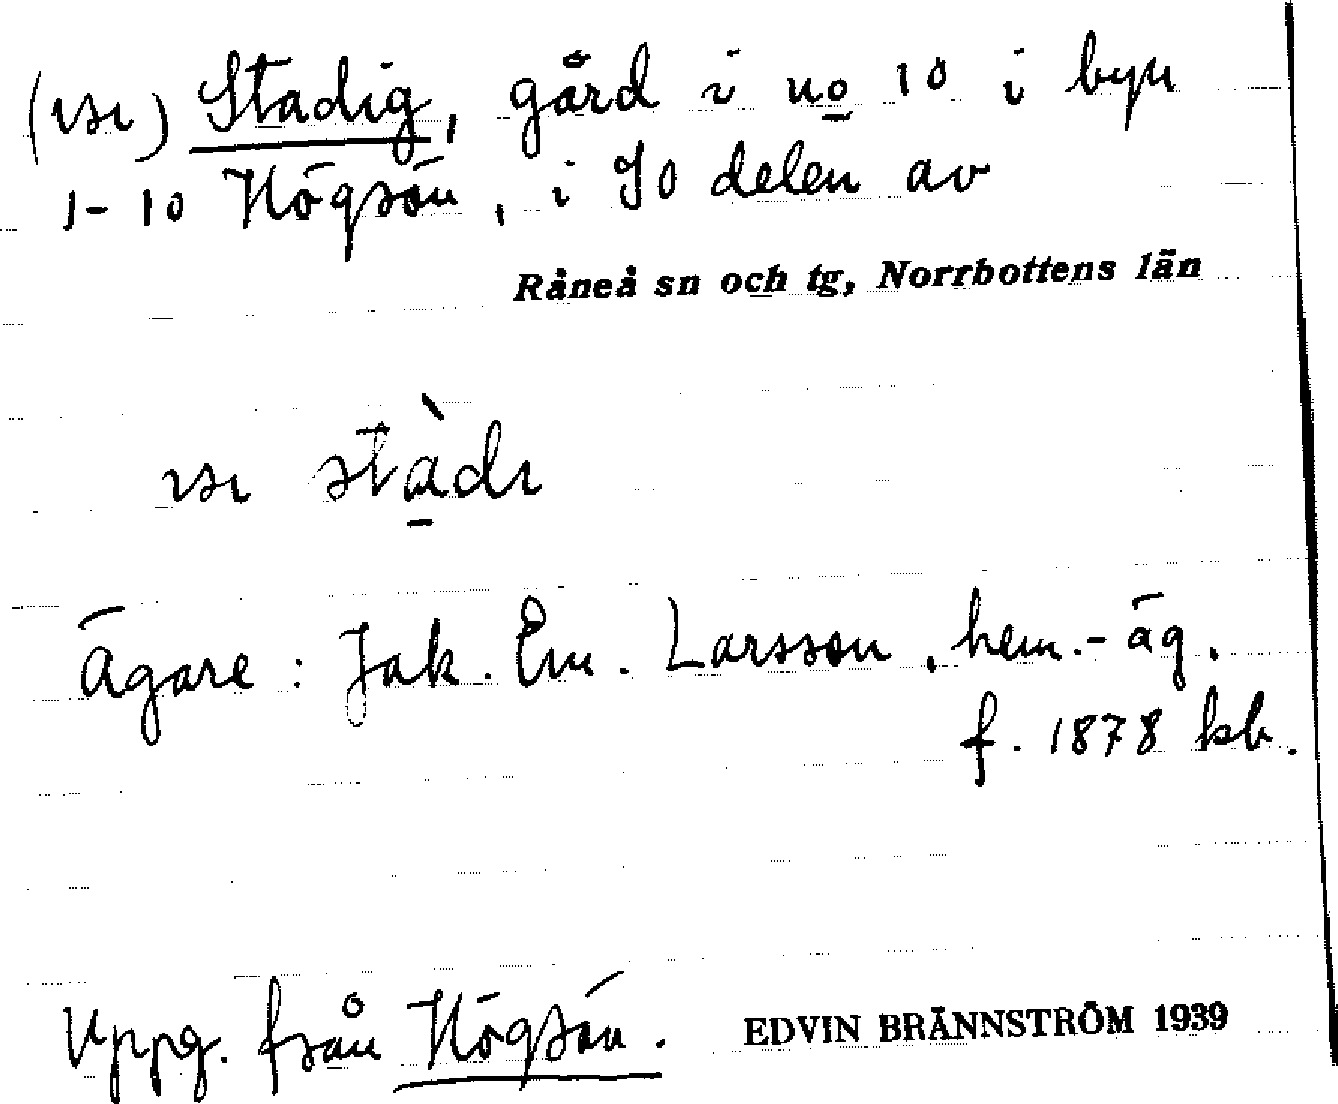 (ısı) Stadig, gård i no 10 i byn
1-10 Högsön, i SO delen av
Råneå sn och tg, Norrbottens län
ısı stàdı
Ägare: Jak. Em. Larsson, hem.-äg.
f. 1878 kb.
Uppg. från Högsön.
EDVIN BRÄNNSTRÖM 1939